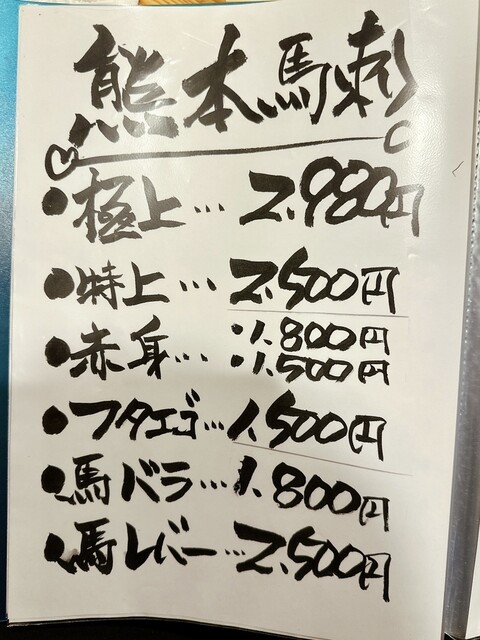 熊本馬刺し
●極上…2.980円
●特上…2.500円
●赤身…1.800円
1.500円
●フタエゴ…1.500円
●馬バラ…1.800円
●馬レバー…2.500円